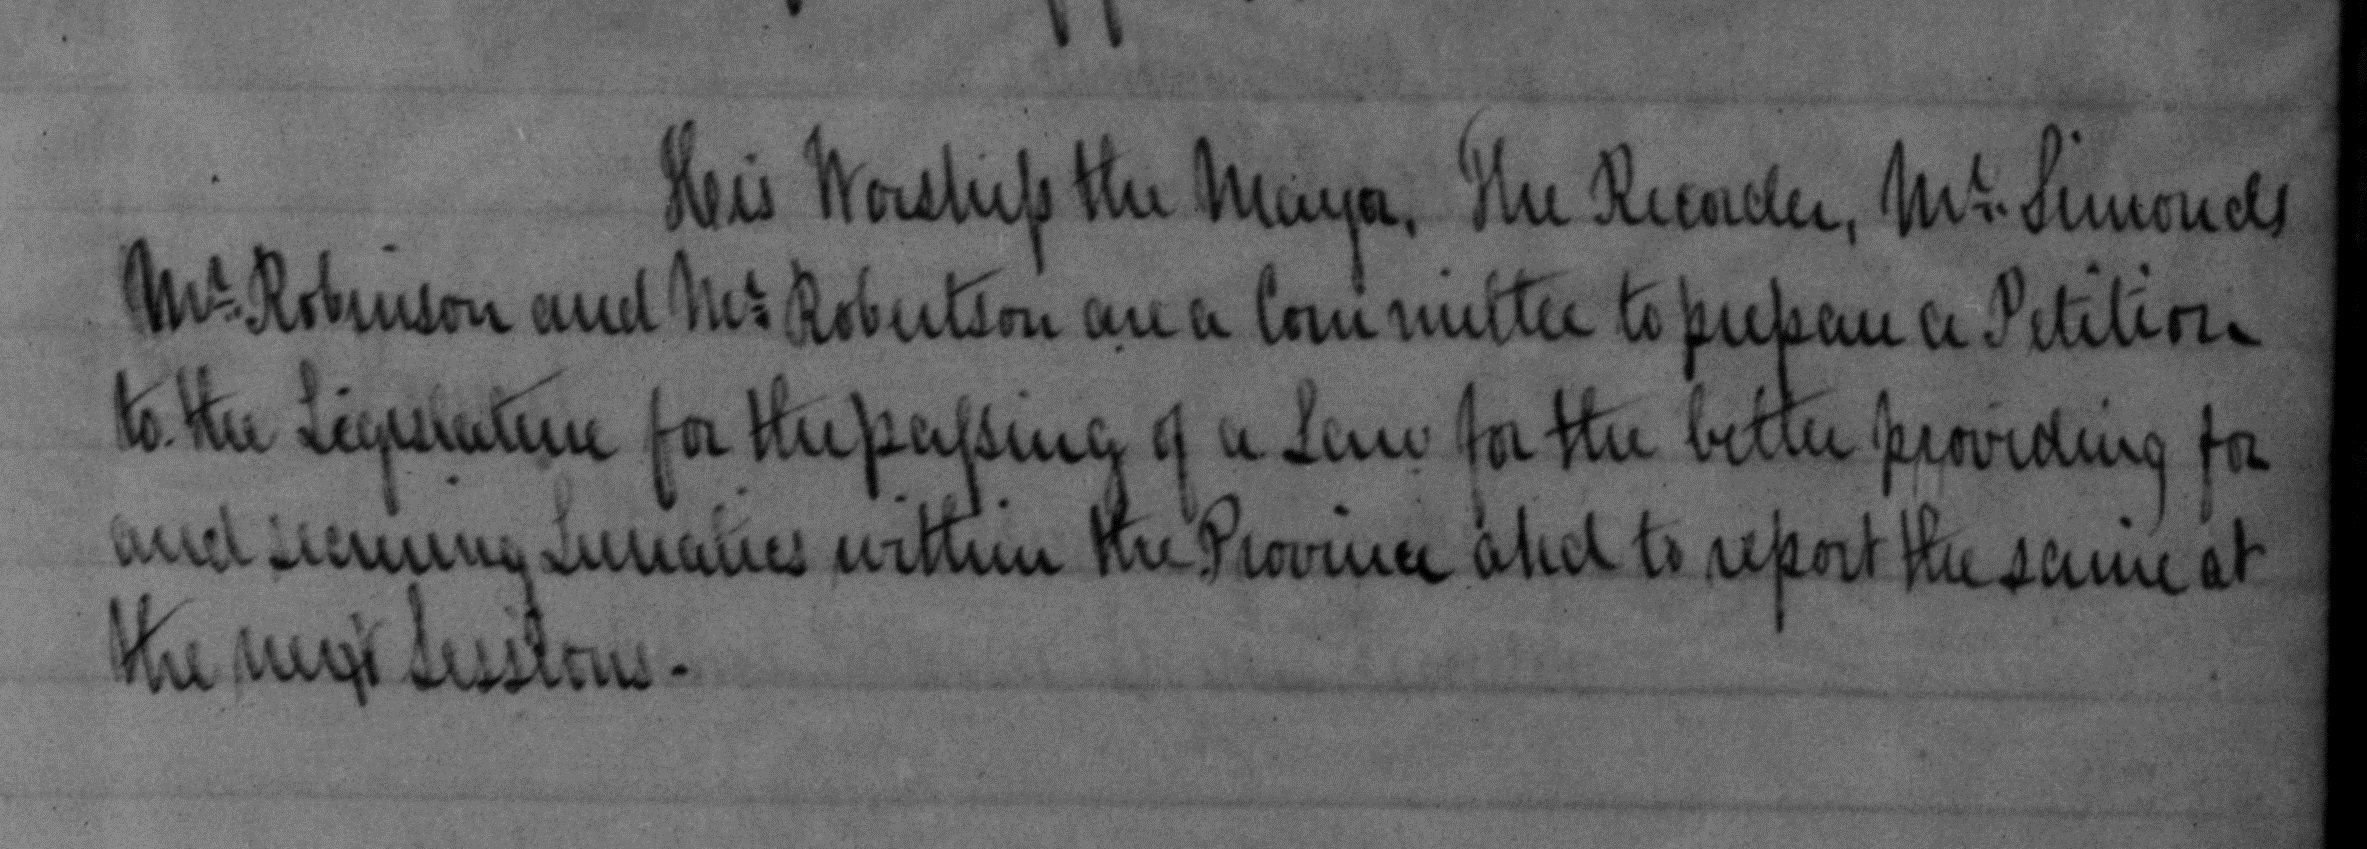 His Worship the Mayor, The Recorder, Mr. Simonds
Mr. Robinson and Mr. Robertson are a Committee to prepare a Petition
to the Legislature for the passing of a Law for the better providing for
and securing Lunatics within the Province and to report the same at
the next Sessions.-